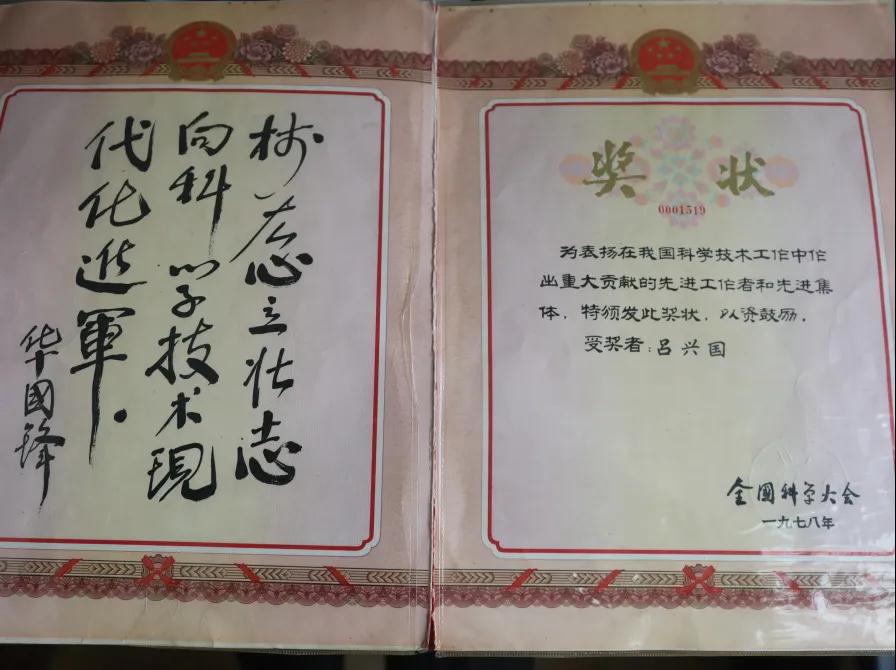 树雄心立壮志
向科学技术現
代化進軍。
华國锋
奖状
0001519
为表扬在我国科学技术工作中作
出重大贡献的先进工作者和先进集
体，特颁发此奖状，以资鼓励。
受奖者：吕兴国
全國科学大会
一九七八年